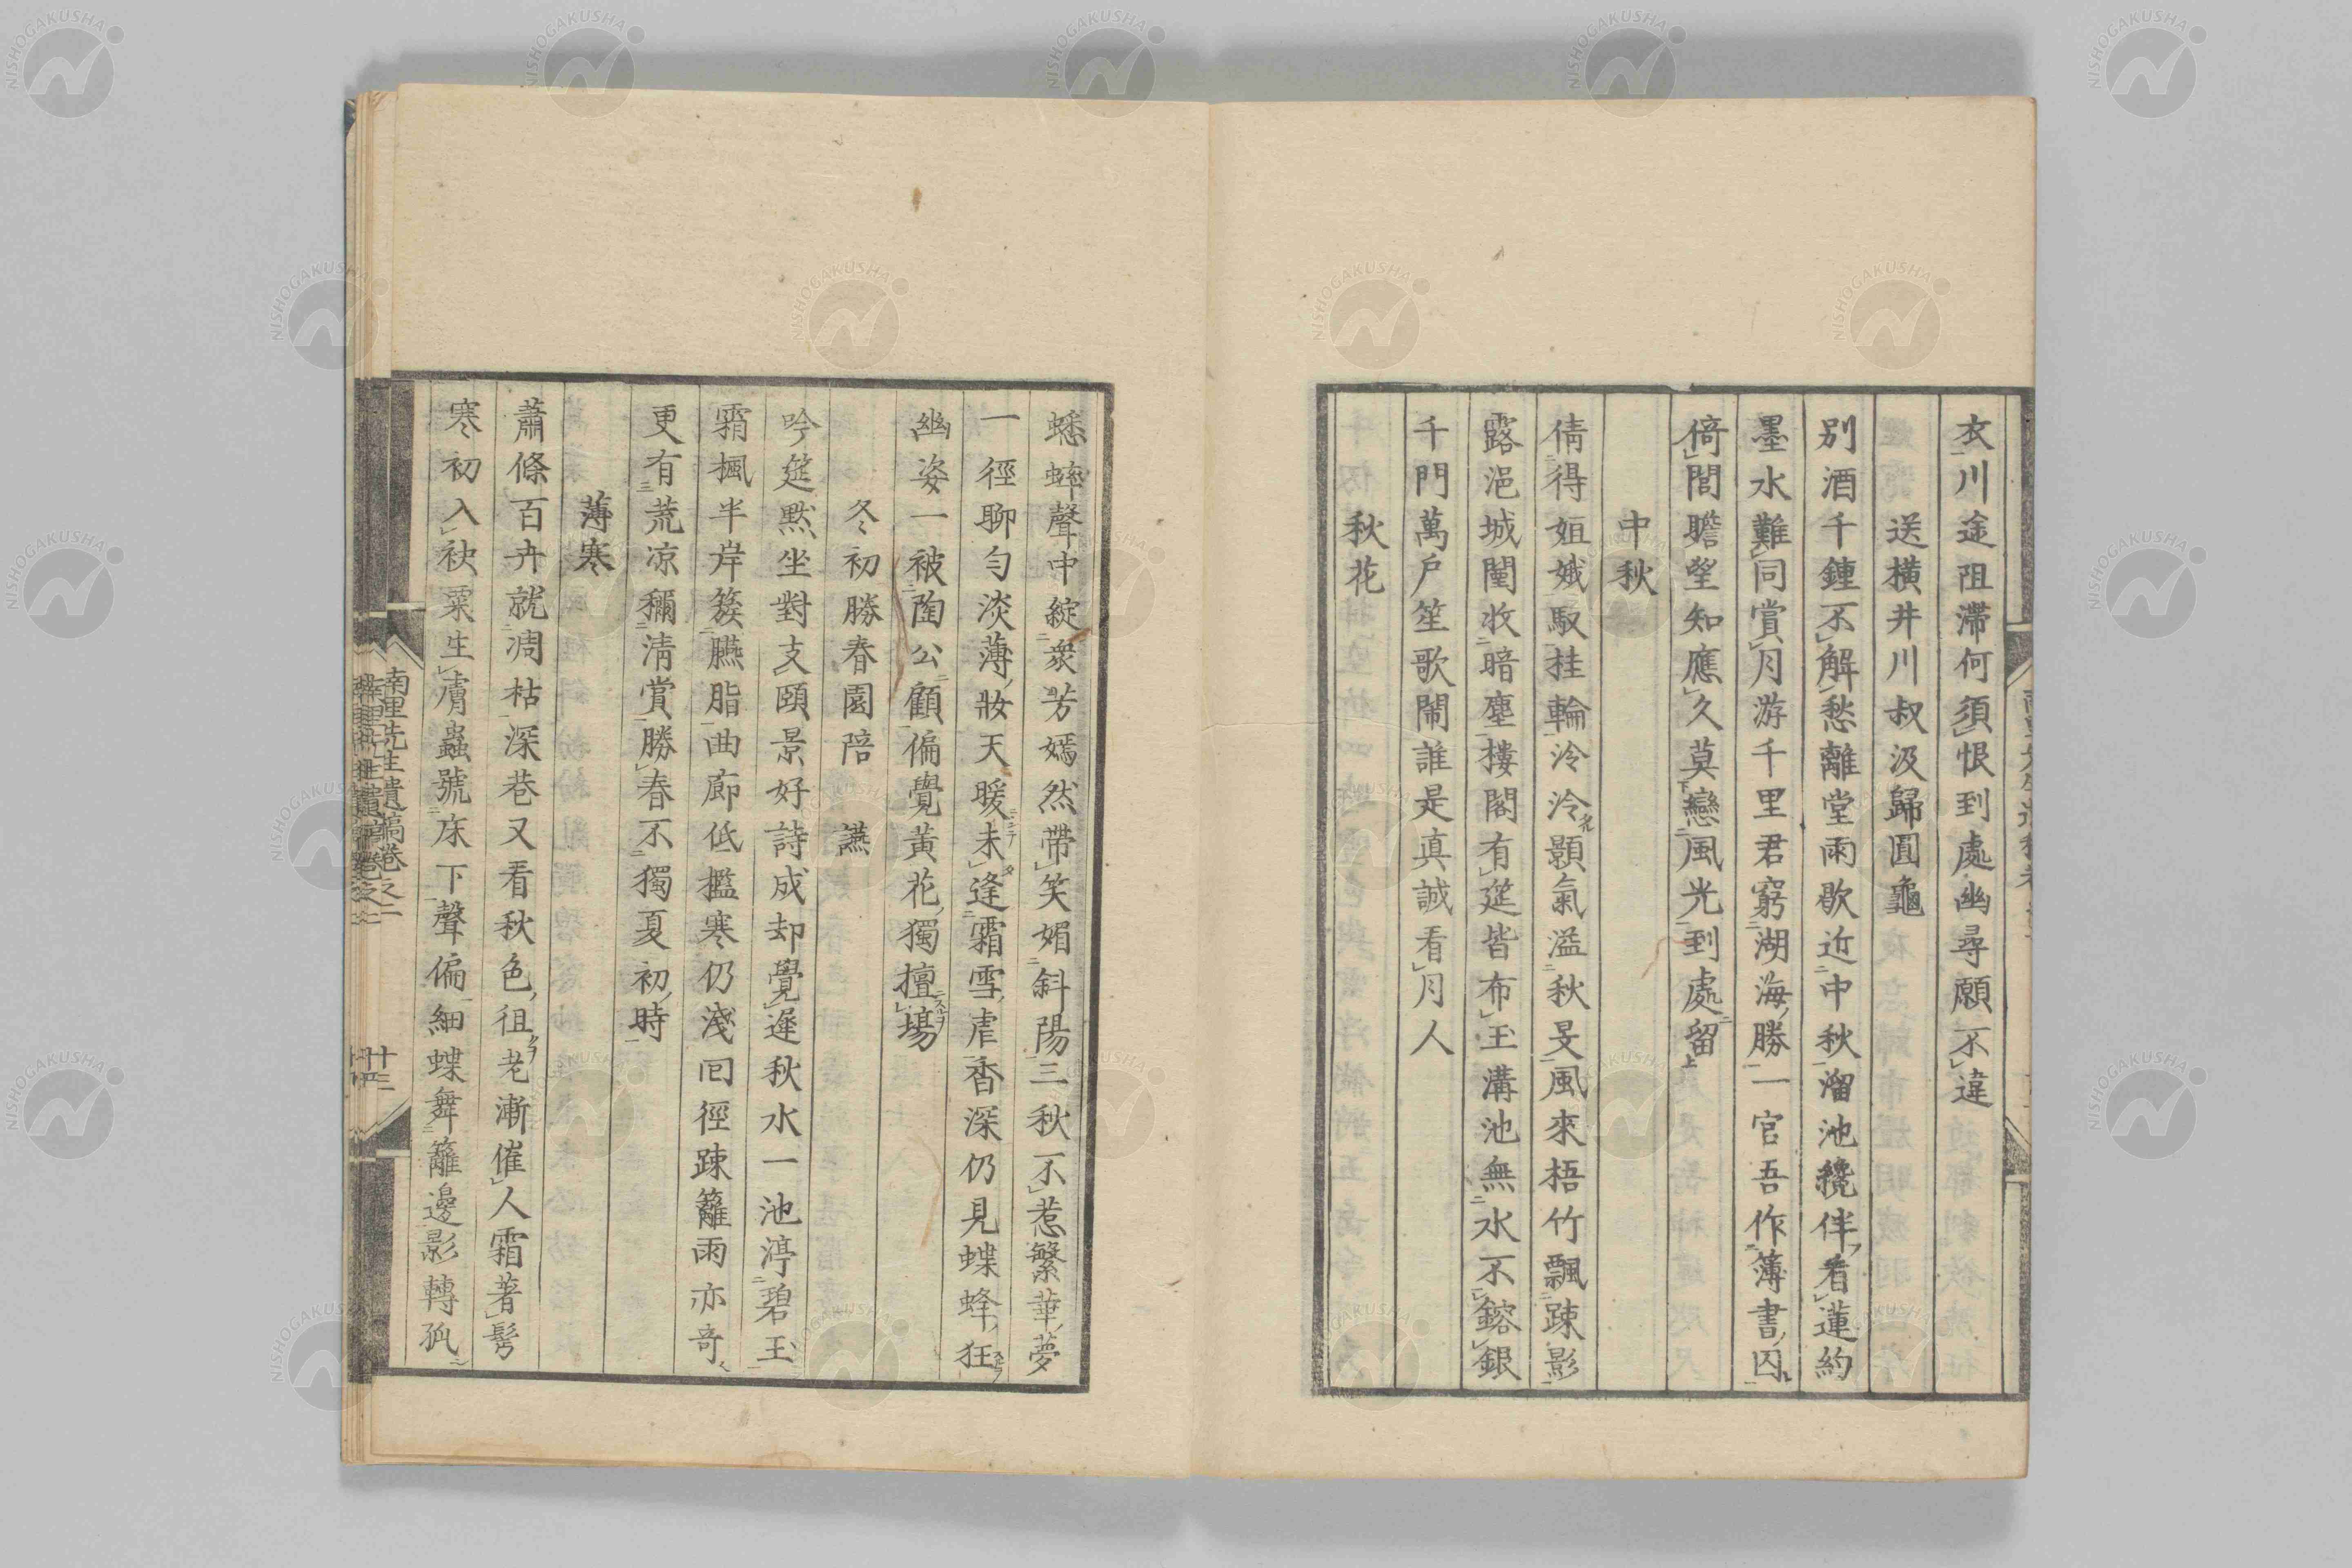 衣川途阻滯何須恨到處幽尋願不違
送横井川叔汲歸圓龜
別酒千鍾不解愁離堂雨歇近中秋溜池纔伴看蓮約
墨水難同賞月游千里君窮湖海勝一官吾作簿書囚
倚閭瞻望知應久莫戀風光到處留
中秋
倩得姮娥馭桂輪泠泠顥氣溢秋旻風來梧竹飄踈影
露浥城闉收暗塵樓閣有筵皆布玉溝池無水不鎔銀
千門萬戶笙歌鬧誰是真誠看月人
秋花
蟋蟀聲中綻衆芳嫣然帶笑媚斜陽三秋不惹繁華夢
一徑聊勻淡薄妝天暖未逢霜雪虐香深仍見蝶蜂狂
幽姿一被陶公顧偏覺黃花獨擅場
冬初勝春園陪讌
吟筵黙坐對支頤景好詩成却覺遲秋水一池渟碧玉
霜楓半岸簇臙脂曲廊低檻寒仍淺回徑踈籬雨亦奇
更有荒凉稱清賞勝春不獨夏初時
薄寒
蕭條百卉就凋枯深巷又看秋色徂老漸催人霜著鬢
寒初入袂粟生膚蟲號床下聲偏細蝶舞籬邊影轉孤
南里先生遺稿卷之二
十三
NISHOGAKUSHA